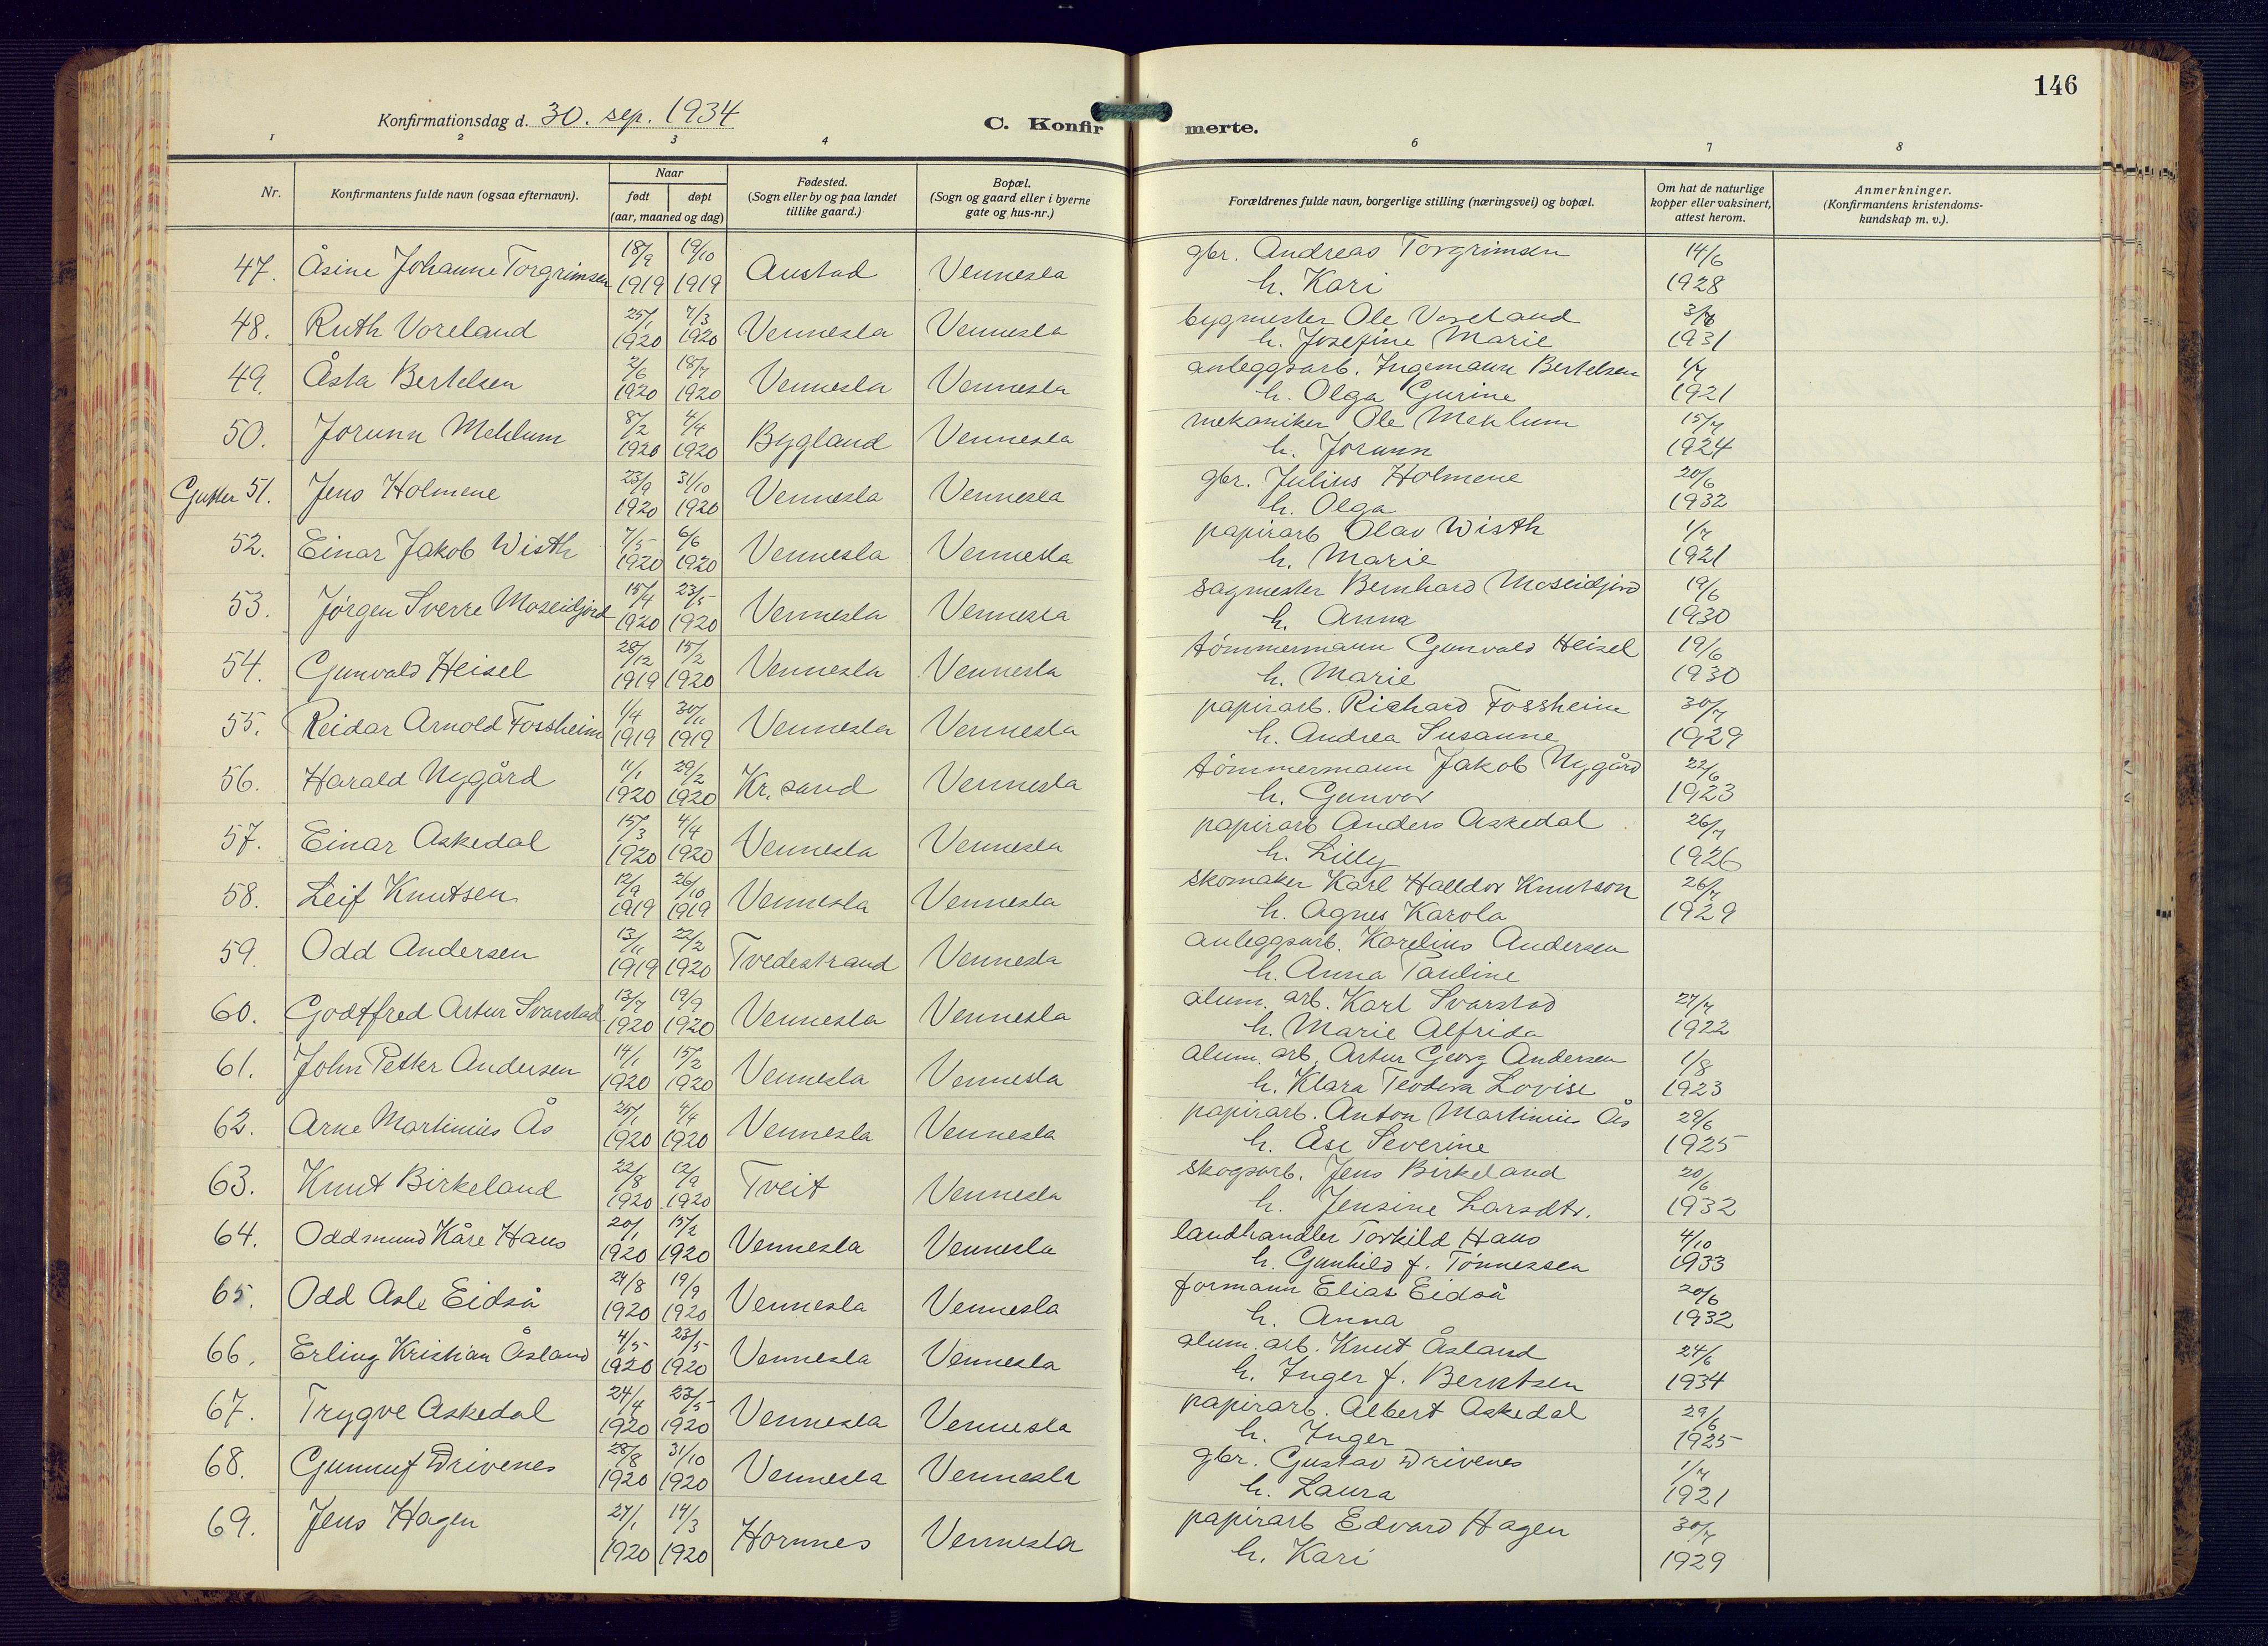 146
Konfirmationsdag d. 30. sep. 1934
C. Konfirmerte.
1 2 3 4 5 6 7 8
Nr.
Konfirmantens fulde navn (ogsaa efternavn).
Naar
født døpt
(aar, maaned og dag)
Fødested.
(Sogn eller by og paa landet
tillike gaard.)
Bopæl.
(Sogn og gaard eller i byerne
gate og hus-nr.)
Forældrenes fulde navn, borgerlige stilling (næringsvei) og bopæl.
Om hat de naturlige
kopper eller vaksinert,
attest herom.
Anmerkninger.
(Konfirmantens kristendoms-
kundskap m. v.).
47. Åsine Johanne Torgrimsen 18/9 1919 19/10 1919 Austad Vennesla gbr. Andreas Torgrimsen 14/6
h. Kari 1928
48. Ruth Voreland 25/1 1920 7/3 1920 Vennesla Vennesla bygmester Ole Voreland
h. Josefine Marie 1931
49. Åsta Bertelsen 2/6 1920 18/7 1920 Vennesla Vennesla anleggsarb. Ingemann Bertelsen 1/7
h. Olga Gurine 1921
50. Jorunn Mehlum 8/2 1920 4/4 1920 Bygland Vennesla mekaniker Ole Mehlum 15/7
h. Jorunn 1924
Gutter 51. Jens Holmene 23/9 1920 31/10 1920 Vennesla Vennesla gbr. Julius Holmene 20/6
h. Olga 1932
52. Einar Jakob Wisth 7/5 1920 6/6 1920 Vennesla Vennesla papirarb Olav Wisth 1/7
h. Marie 1921
53. Jørgen Sverre Moseidjord 15/4 1920 23/5 1920 Vennesla Vennesla sagmester Bernhard Moseidjord 19/6
h. Anna 1930
54. Gunvald Heisel 28/12 1919 15/2 1920 Vennesla Vennesla tømmermann Gunvald Heisel 19/6
h. Marie 1930
55. Reidar Arnold Fossheim 1/4 1919 30/11 1919 Vennesla Vennesla papirarb. Richard Fossheim 30/7
h. Andrea Susanne 1929
56. Harald Nygård 11/1 1920 29/2 1920 Kr. sand Vennesla tømmermann Jakob Nygård 22/6
h. Gunvor 1923
57. Einar Askedal 15/3 1920 4/4 1920 Vennesla Vennesla papirarb Anders Askedal 26/7
h. Lilly 1926
58. Leif Knutsen 12/9 1919 26/10 1919 Vennesla Vennesla skomaker Karl Halldor Knutson 26/7
h. Agnes Karola 1929
59. Odd Andersen 13/11 1919 22/2 1920 Tvedestrand Vennesla anleggsarb. Karelius Andersen
h. Anna Pauline
60. Godtfred Artur Svarstad 13/7 1920 19/9 1920 Vennesla Vennesla alum. arb. Karl Svarstad 27/7
h. Marie Alfrida 1922
61. John Petter Andersen 14/1 1920 15/2 1920 Vennesla Vennesla alum. arb. Artur Georg Andersen 1/8
h. Klara Teodora Lovise 1923
62. Arne Martinius Ås 25/1 1920 4/4 1920 Vennesla Vennesla papirarb. Anton Martinius Ås 29/6
h. Åse Severine 1925
63. Knut Birkeland 22/8 1920 12/9 1920 Tveit Vennesla skogsarb. Jens Birkeland 20/6
h. Jensine Larsdtr. 1932
64. Oddmund Kåre Haus 20/1 1920 15/2 1920 Vennesla Vennesla landhandler Torkild Haus 4/10
h. Gunhild f. Tønnessen 1933
65. Odd Asle Eidså 24/8 1920 19/9 1920 Vennesla Vennesla formann Elias Eidså 20/6
h. Anna 1932
66. Erling Kristian Åsland 4/5 1920 23/5 1920 Vennesla Vennesla alum. arb. Knut Åsland 24/6
h. Inger f. Berntsen 1934
67. Trygve Askedal 24/4 1920 23/5 1920 Vennesla Vennesla papirarb. Albert Askedal 29/6
h. Inger 1925
68. Gunnuf Drivenes 28/8 1920 31/10 1920 Vennesla Vennesla gbr. Gustav Drivenes 1/7
h. Laura 1921
69. Jens Hagen 27/1 1920 14/3 1920 Hornnes Vennesla papirarb Edvard Hagen 30/7
h. Kari 1929